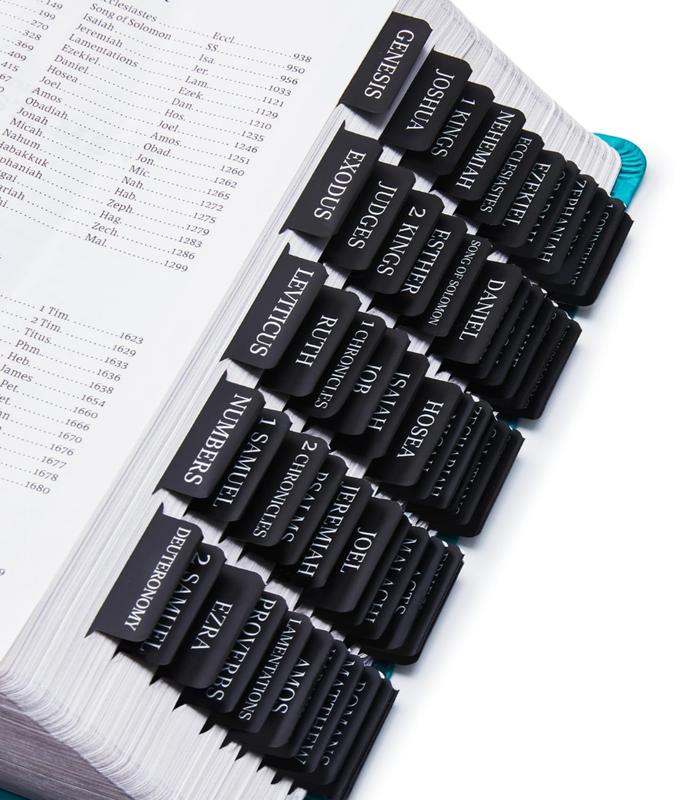 Ecclesiastes Eccl. 938
Song of Solomon SS 950
Isaiah Isa. 956
Jeremiah Jer. 1033
Lamentations Lam. 1121
Ezekiel Ezek. 1129
Daniel Dan. 1210
Hosea Hos. 1235
Joel Joel. 1246
Amos Amos. 1251
Obadiah Obad. 1260
Jonah Jon. 1262
Micah Mic. 1265
Nahum Nah. 1272
Habakkuk Hab. 1275
phaniah Zeph. 1279
Hag. 1283
ariah Zech. 1286
Mal. 1299
149
199
270
328
369
409
415
1 Tim. 1623
2 Tim. 1629
Titus. 1633
Phm. 1636
Heb. 1638
James 1654
Pet. 1660
1666
1670
1676
1677
1678
1680
GENESIS
JOSHUA
1 KINGS
NEHEMIAH
ECCLESIASTES
EZEKIEL
ZEPHANIAH
EXODUS
JUDGES
2 KINGS
ESTHER
SONG OF SOLOMON
DANIEL
LEVITICUS
RUTH
1 CHRONICLES
JOB
ISAIAH
HOSEA
NUMBERS
1 SAMUEL
2 CHRONICLES
PSALMS
JEREMIAH
JOEL
MALACHI
ACTS
DEUTERONOMY
2 SAMUEL
EZRA
PROVERBS
LAMENTATIONS
AMOS
MATTHEW
ROMANS